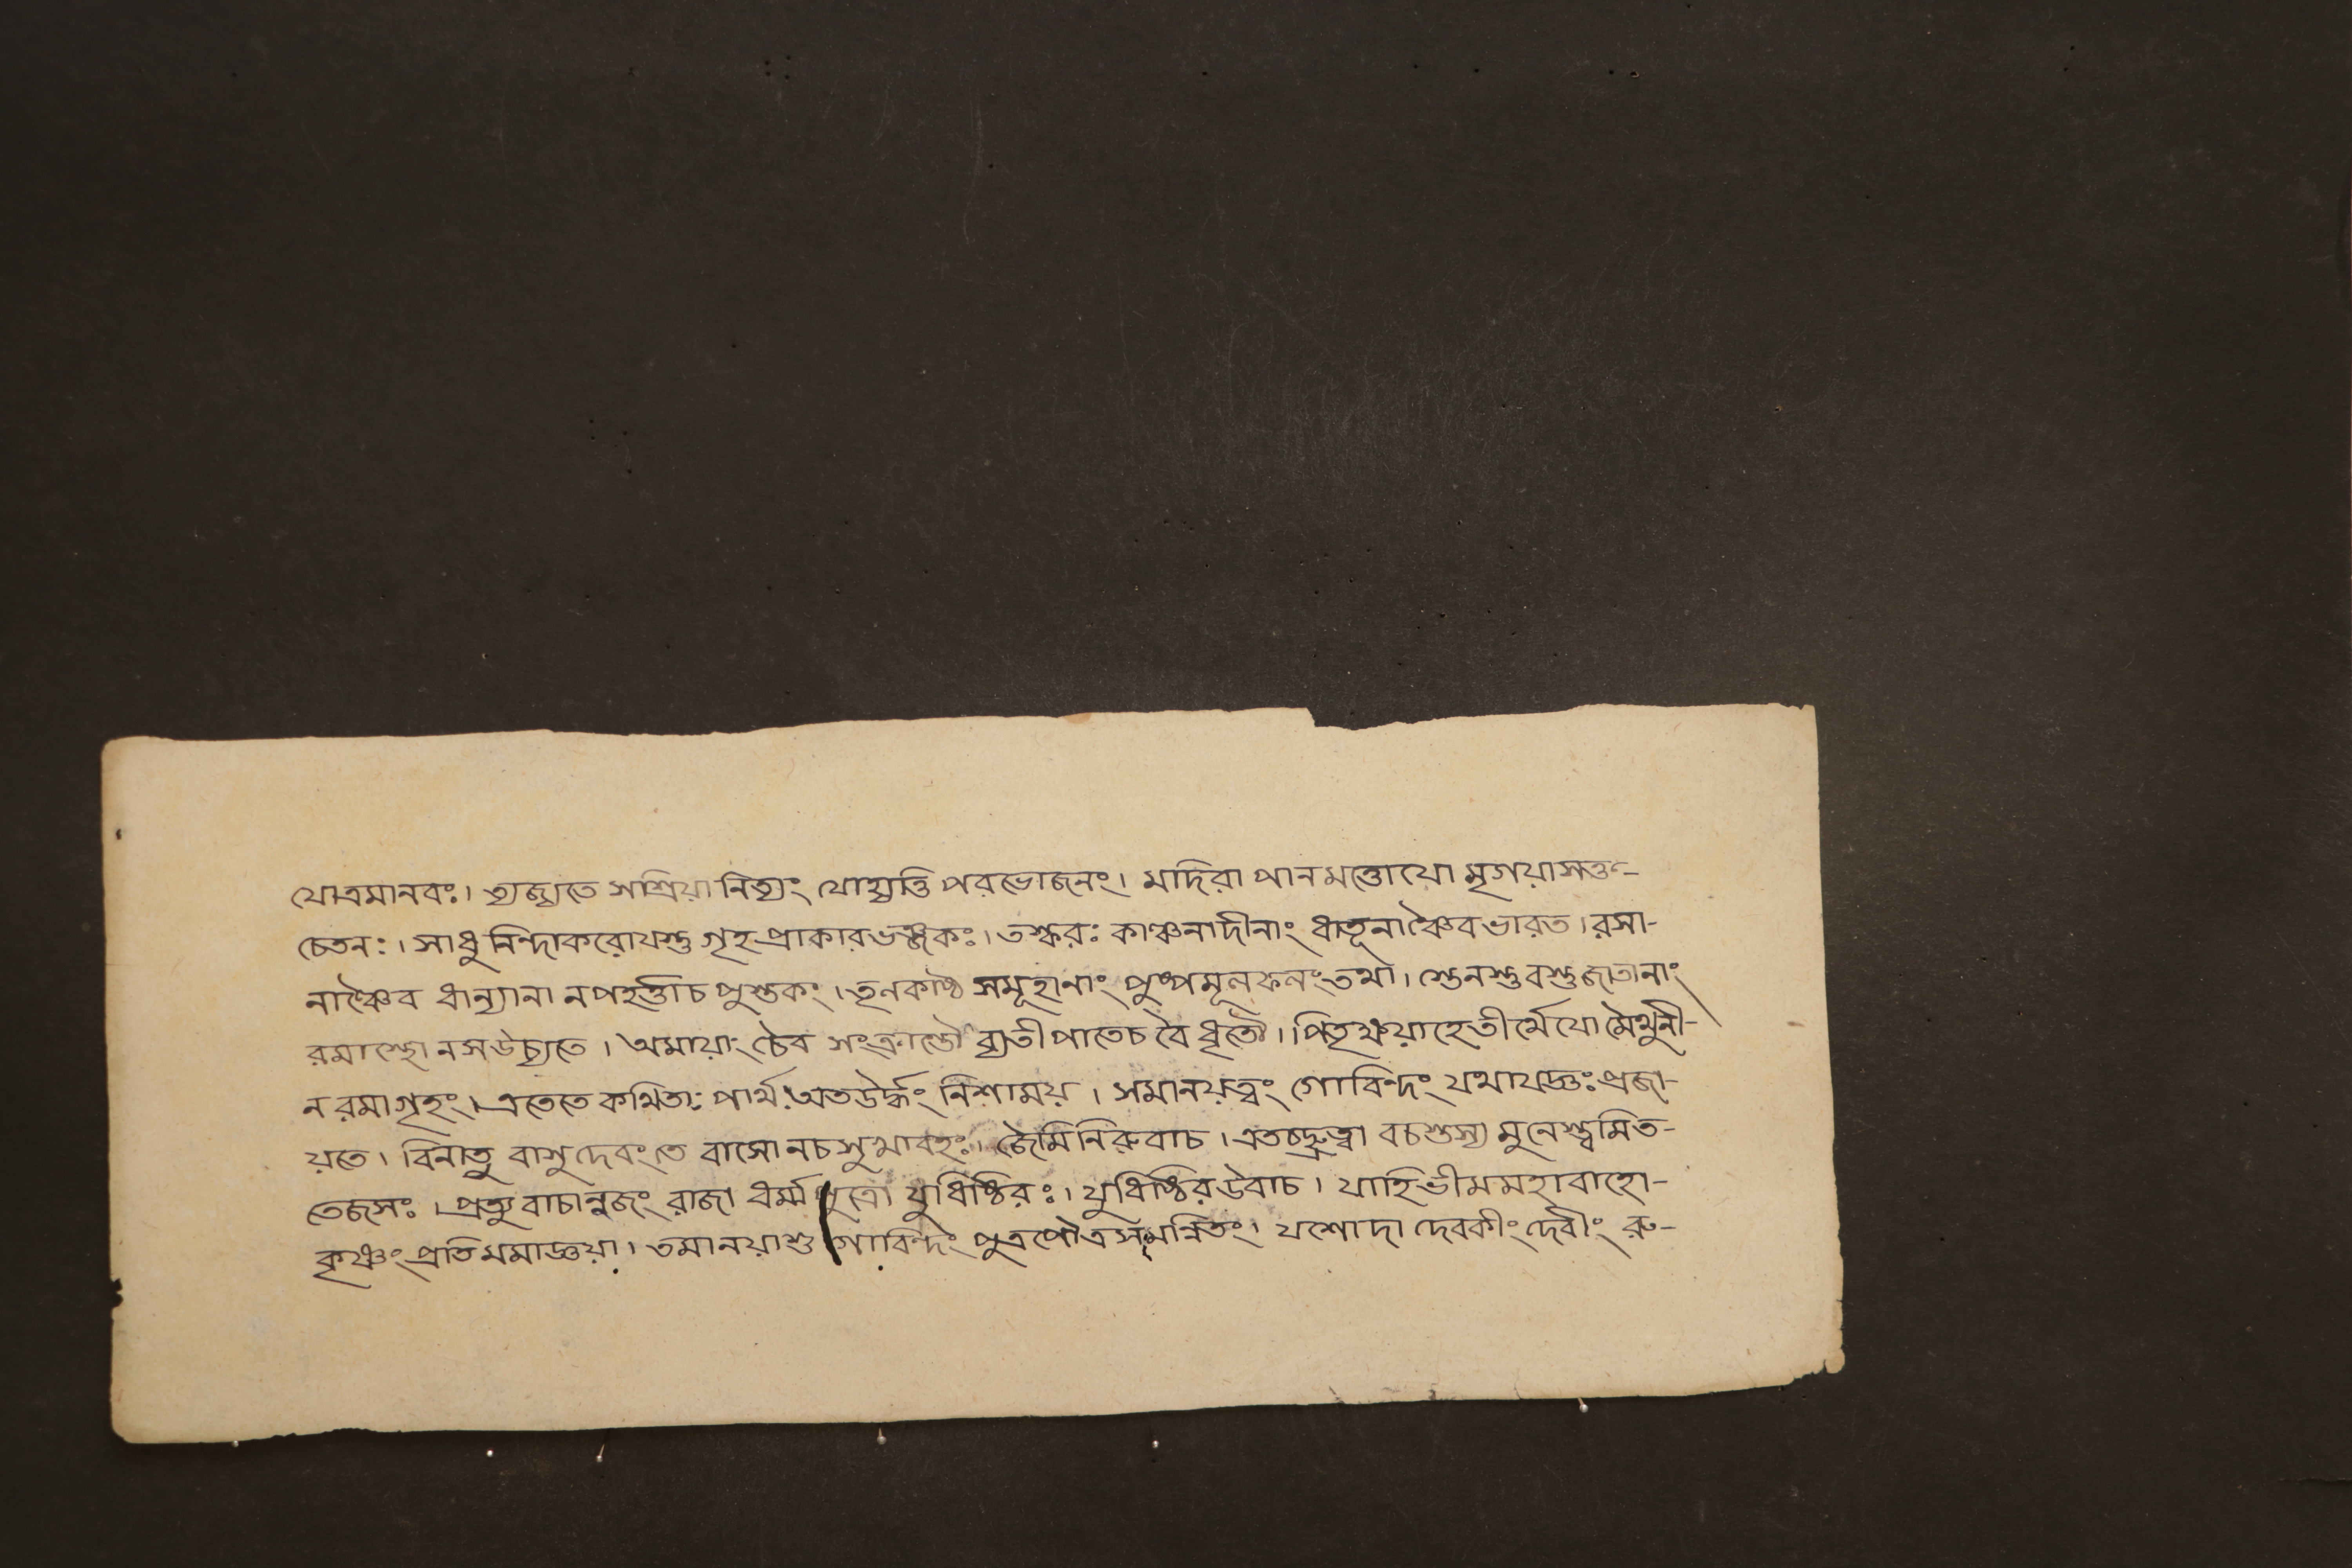 যোত্রমানবঃ। ত্যজ্যতে সশ্রিয়া নিত্যং যোহ্যত্তি পরভোজনং। মদিরা পানমত্তোযো মৃগয়াসক্ত-
চেতনঃ। সাধু নিন্দাকরোযস্তু গৃহপ্রাকারভঞ্জকঃ। তস্করঃ কাঞ্চনাদীনাং ধাতূনাঞ্চৈবভারত। রসা-
নাঞ্চৈব ধান্যানা নপহর্ত্তাচ পুস্তকং। তৃণকাষ্ঠ সমূহানাং পুষ্পমূলফলংতথা। স্তেনস্তুবস্তুজাতানাং
রমাস্থো নসউচ্যতে। অমায়াং চৈব সংক্রান্তৌ ব্যতীপাতেচ বৈধৃতৌ। পিতৃক্ষয়াহেতীর্থেযো মৈথুনী-
নরমাগৃহং। এতেতে কথিতাঃ পার্থ অতঊর্দ্ধং নিশাময়। সমানয়ত্বং গোবিন্দং যথাযজ্ঞঃ প্রজা-
য়তে। বিনাতু বাসুদেবংতে বাসোনচসুখাবহঃ। জৈমিনিরুবাচ। এতচ্ছ্রুত্বা বচস্তস্য মুনেস্ত্বমিত-
তেজসঃ। প্রত্যুবাচানুজং রাজা ধর্ম্মপুত্রো যুধিষ্ঠিরঃ। যুধিষ্ঠিরউবাচ। যাহিভীমমহাবাহো-
কৃষ্ণং প্রতিমমাজ্ঞয়া। তমানয়াশু গোবিন্দং পুত্রপৌত্রসমন্নিতং। যশোদা দেবকীং দেবীং রু-